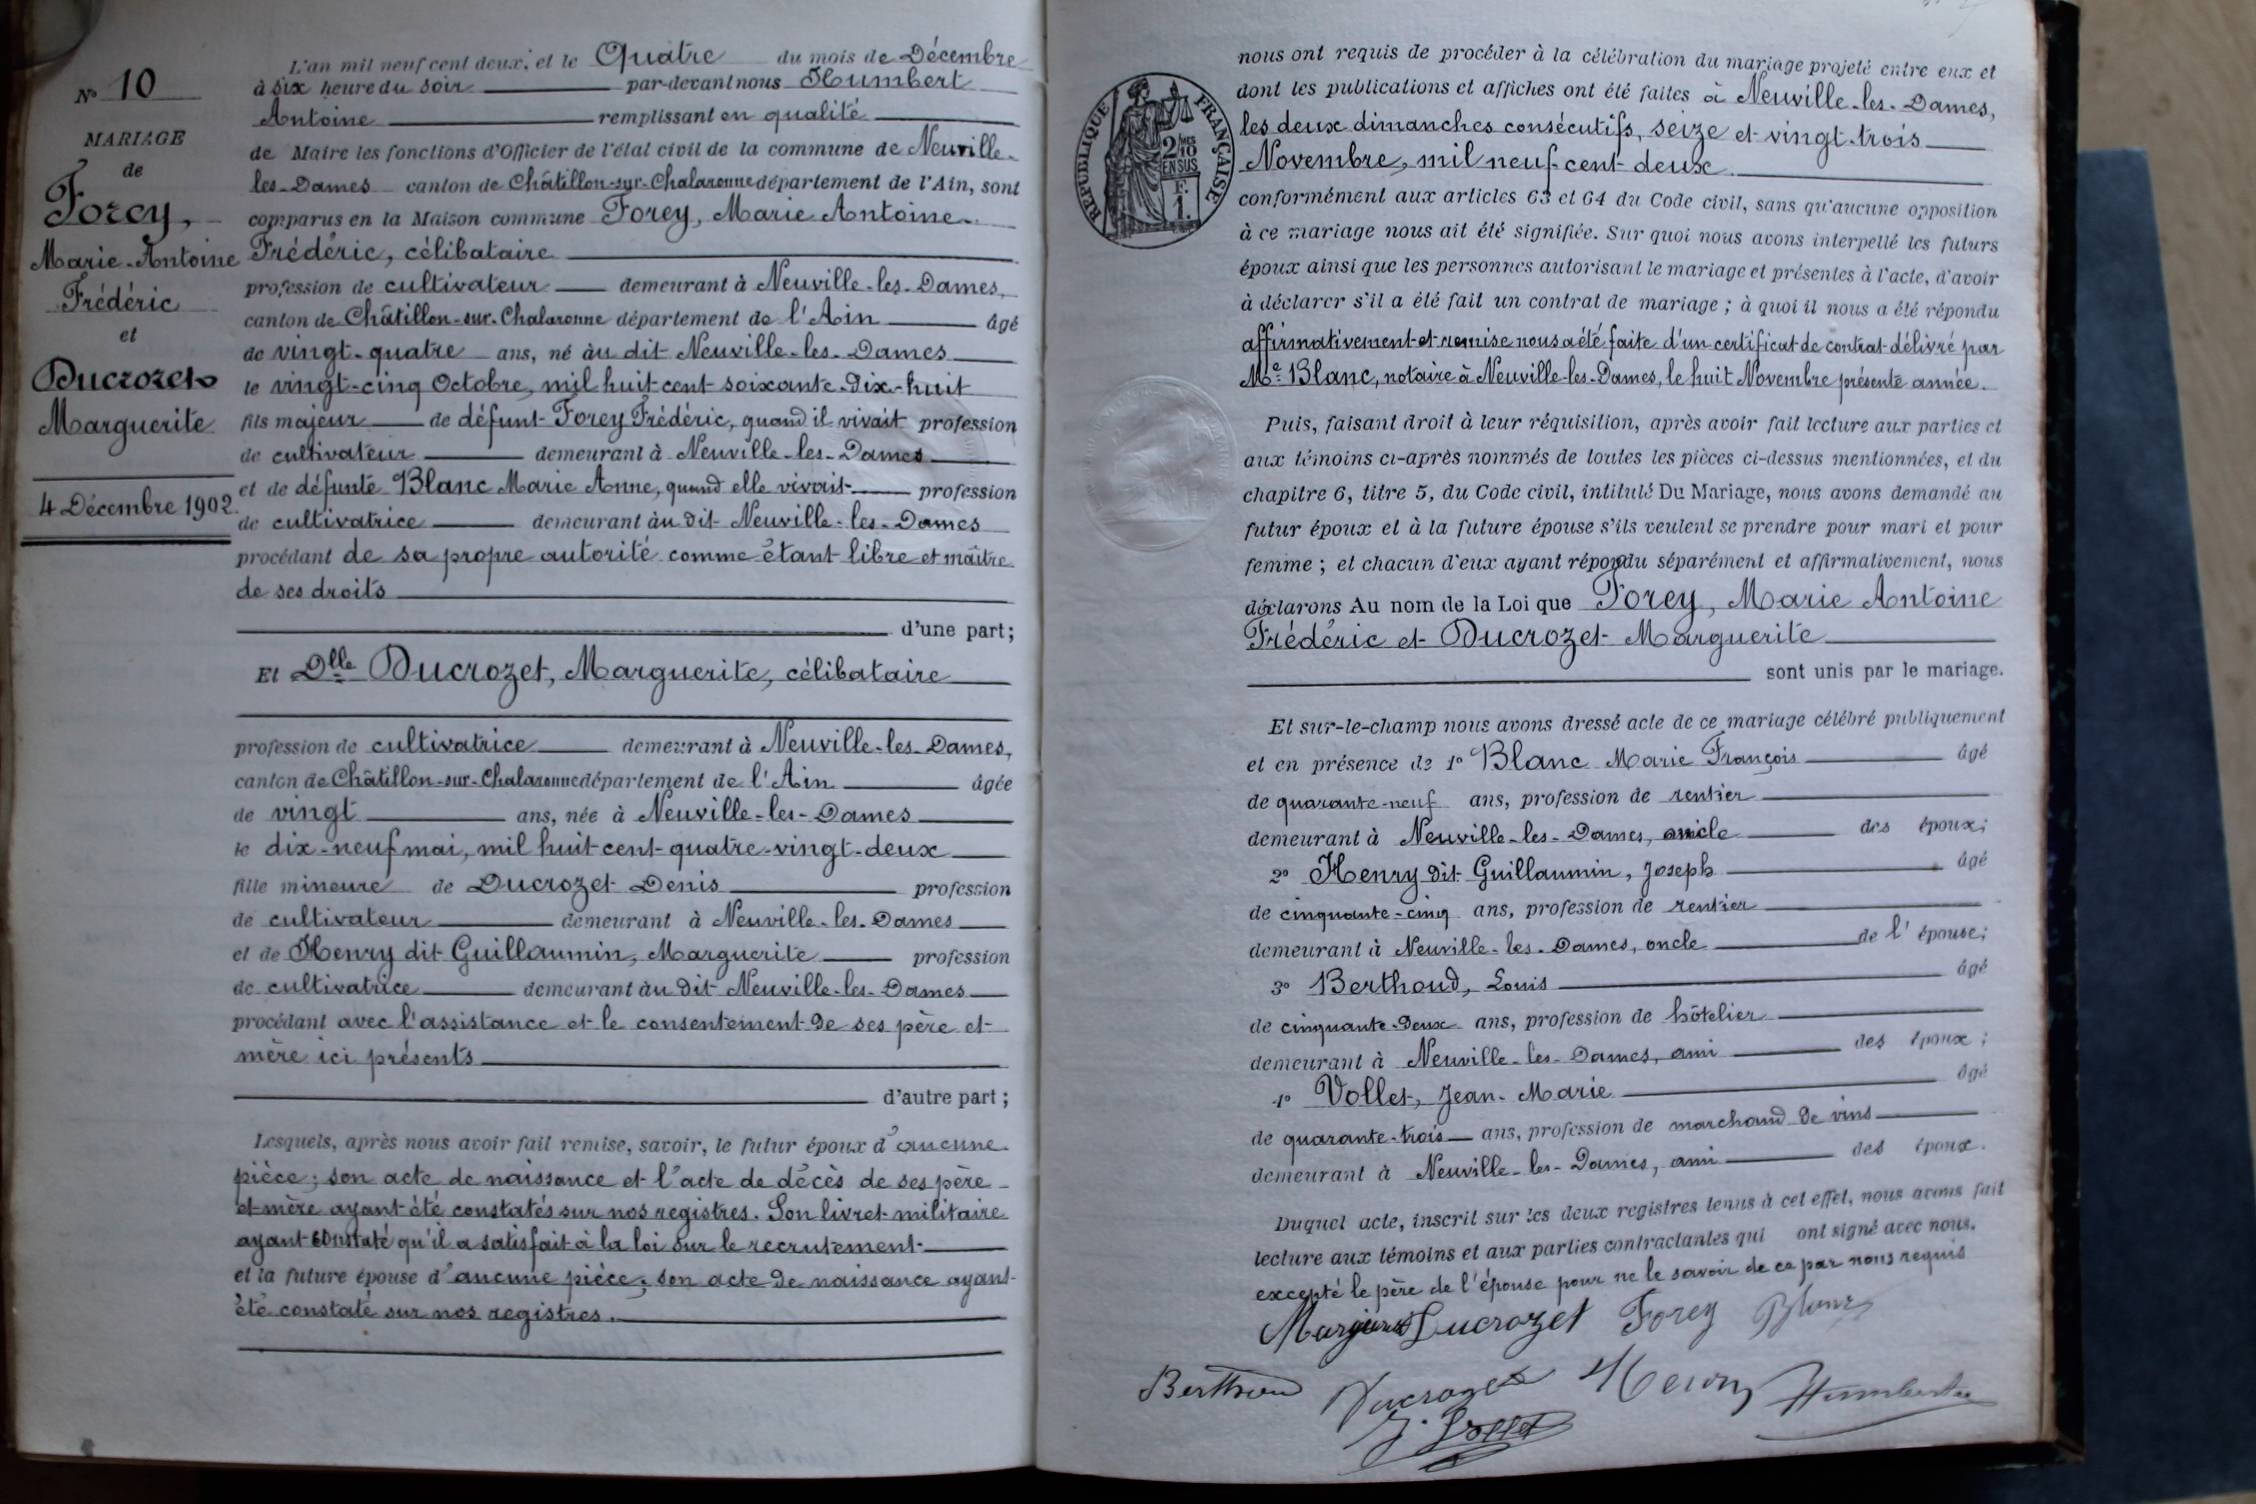 N° 10
MARIAGE
de
Forey,
Marie-Antoine
Frédéric
et
Ducrozet
Marguerite
4 Décembre 1902.
L'an mil neuf cent deux, et le Quatre du mois de Décembre
à six heure du soir par-devant nous Humbert
Antoine remplissant en qualité
de Maire les fonctions d'Officier de l'état civil de la commune de Neuville-
les-Dames canton de Châtillon-sur-Chalaronne département de l'Ain, sont
comparus en la Maison commune Forey, Marie Antoine
Frédéric, célibataire
profession de cultivateur demeurant à Neuville-les-Dames,
canton de Châtillon-sur-Chalaronne département de l'Ain âgé
de vingt-quatre ans, né àu dit Neuville-les-Dames
le vingt-cinq Octobre, mil huit cent soixante-dix-huit
fils majeur de défunt Forey Frédéric, quand il vivait profession
de cultivateur demeurant à Neuville-les-Dames
et de défunte Blanc Marie Anne, quand elle vivait profession
de cultivatrice demeurant àu dit Neuville-les-Dames
procédant de sa propre autorité comme étant libre et maître
de ses droits
d'une part;
Et Dlle Ducrozet, Marguerite, célibataire
profession de cultivatrice demeurant à Neuville-les-Dames,
canton de Châtillon-sur-Chalaronne département de l'Ain âgée
de vingt ans, née à Neuville-les-Dames
le dix-neuf mai, mil huit cent quatre-vingt-deux
fille mineure de Ducrozet Denis profession
de cultivateur demeurant à Neuville-les-Dames
et de Henry dit Guillaumin, Marguerite profession
de cultivatrice demeurant àu dit Neuville-les-Dames
procédant avec l'assistance et le consentement de ses père et
mère ici présents
d'autre part;
Lesquels, après nous avoir fait remise, savoir, le futur époux d'aucune
pièce; son acte de naissance et l'acte de décès de ses père
et mère ayant été constatés sur nos registres. Son livret militaire
ayant constaté qu'il a satisfait à la loi sur le recrutement
et la future épouse d'aucune pièce; son acte de naissance ayant
été constaté sur nos registres.
RÉPUBLIQUE FRANÇAISE
2/10 MES
EN SUS
F.
1.
nous ont requis de procéder à la célébration du mariage projeté entre eux et
dont les publications et affiches ont été faites à Neuville-les-Dames,
les deux dimanches consécutifs, seize et vingt-trois
Novembre, mil neuf cent deux.
conformément aux articles 63 et 64 du Code civil, sans qu'aucune opposition
à ce mariage nous ait été signifiée. Sur quoi nous avons interpellé les futurs
époux ainsi que les personnes autorisant le mariage et présentes à l'acte, d'avoir
à déclarer s'il a été fait un contrat de mariage; à quoi il nous a été répondu
affirmativement et remise nous a été faite d'un certificat de contrat délivré par
Me Blanc, notaire à Neuville-les-Dames, le huit Novembre présente année.
Puis, faisant droit à leur réquisition, après avoir fait lecture aux parties et
aux témoins ci-après nommés de toutes les pièces ci-dessus mentionnées, et du
chapitre 6, titre 5, du Code civil, intitulé Du Mariage, nous avons demandé au
futur époux et à la future épouse s'ils veulent se prendre pour mari et pour
femme; et chacun d'eux ayant répondu séparément et affirmativement, nous
déclarons Au nom de la Loi que Forey, Marie Antoine
Frédéric et Ducrozet Marguerite
sont unis par le mariage.
Et sur-le-champ nous avons dressé acte de ce mariage célébré publiquement
et en présence de 1° Blanc Marie François âgé
de quarante-neuf ans, profession de rentier
demeurant à Neuville-les-Dames, oncle des époux;
2° Henry dit Guillaumin, Joseph âgé
de cinquante-cinq ans, profession de rentier
demeurant à Neuville-les-Dames, oncle de l'épouse;
3° Berthoud, Louis âgé
de cinquante-deux ans, profession de hôtelier
demeurant à Neuville-les-Dames, ami des époux;
4° Vollet, Jean-Marie âgé
de quarante-trois ans, profession de marchand de vins
demeurant à Neuville-les-Dames, ami des époux.
Duquel acte, inscrit sur les deux registres tenus à cet effet, nous avons fait
lecture aux témoins et aux parties contractantes qui ont signé avec nous.
excepté le père de l'épouse pour ne le savoir de ce par nous requis
Ducrozet Forey Blanc
Berthoud Ducrozet Henry Humbert
J. Vollet